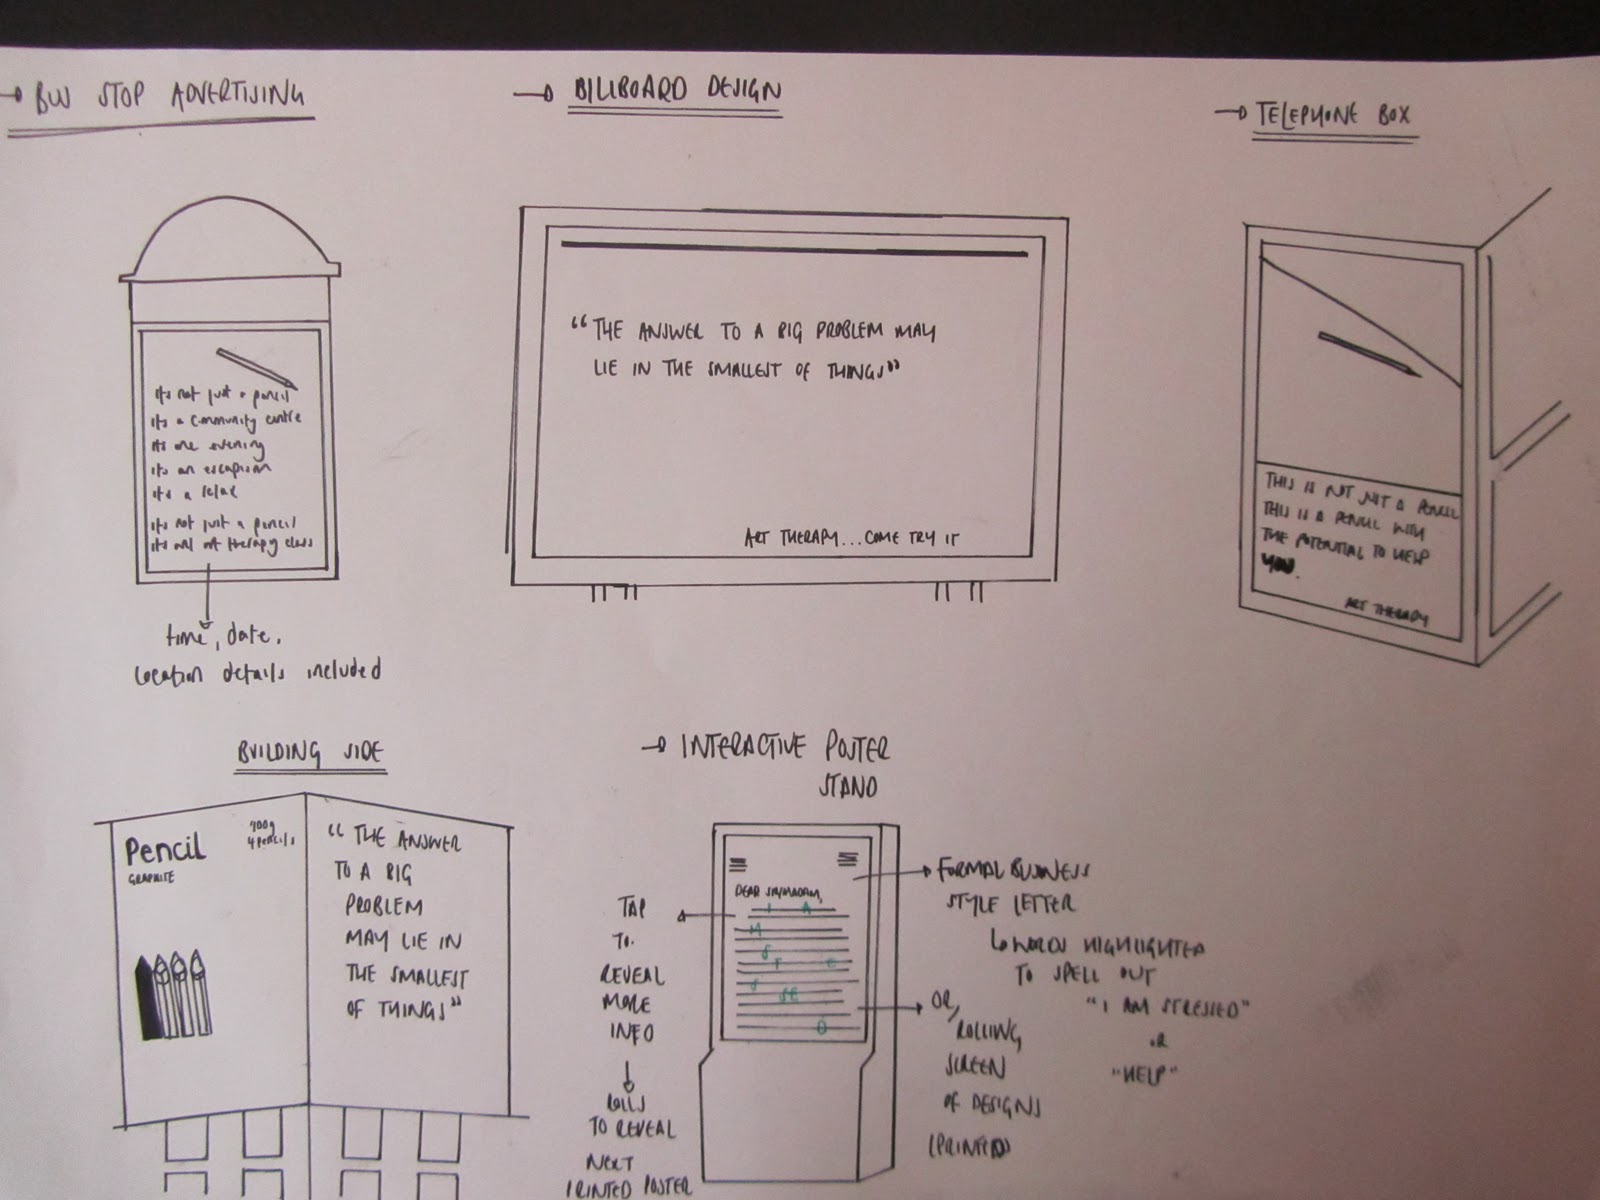 BUS STOP ADVERTISING
its not just a pencil
its a community centre
its one evening
its an escapism
its a relax
its not just a pencil
its an art therapy class
time, date,
location details included
BILLBOARD DESIGN
"THE ANSWER TO A BIG PROBLEM MAY
LIE IN THE SMALLEST OF THINGS"
ART THERAPY...COME TRY IT
TELEPHONE BOX
THIS IS NOT JUST A PENCIL
THIS IS A PENCIL WITH
THE POTENTIAL TO HELP
YOU.
ART THERAPY
BUILDING SIDE
Pencil
GRAPHITE
4 pencils
"THE ANSWER
TO A BIG
PROBLEM
MAY LIE IN
THE SMALLEST
OF THINGS"
INTERACTIVE POSTER
STAND
TAP
TO
REVEAL
MORE
INFO
ROLLS
TO REVEAL
NEXT
PRINTED POSTER
DEAR SIR/MADAM,
I A
M
S
T E
S
SE
D
FORMAL BUSINESS
STYLE LETTER
WORDS HIGHLIGHTED
TO SPELL OUT
"I AM STRESSED"
OR
"HELP"
OR,
ROLLING
SCREEN
OF DESIGNS
(PRINTED)